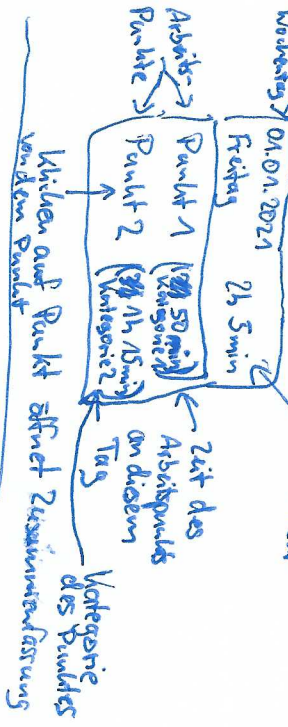 Wochentag
01.01.2021
Freitag
2h 5min
Arbeits-
Punkte
Punkt 1
(50 min)
Kategorie 1
Punkt 2
(1h 15min)
Kategorie 2
Zeit des
Arbeitspunktes
an diesem
Tag
Kategorie
des Punktes
Klicken auf Punkt öffnet Zusammenfassung
von dem Punkt